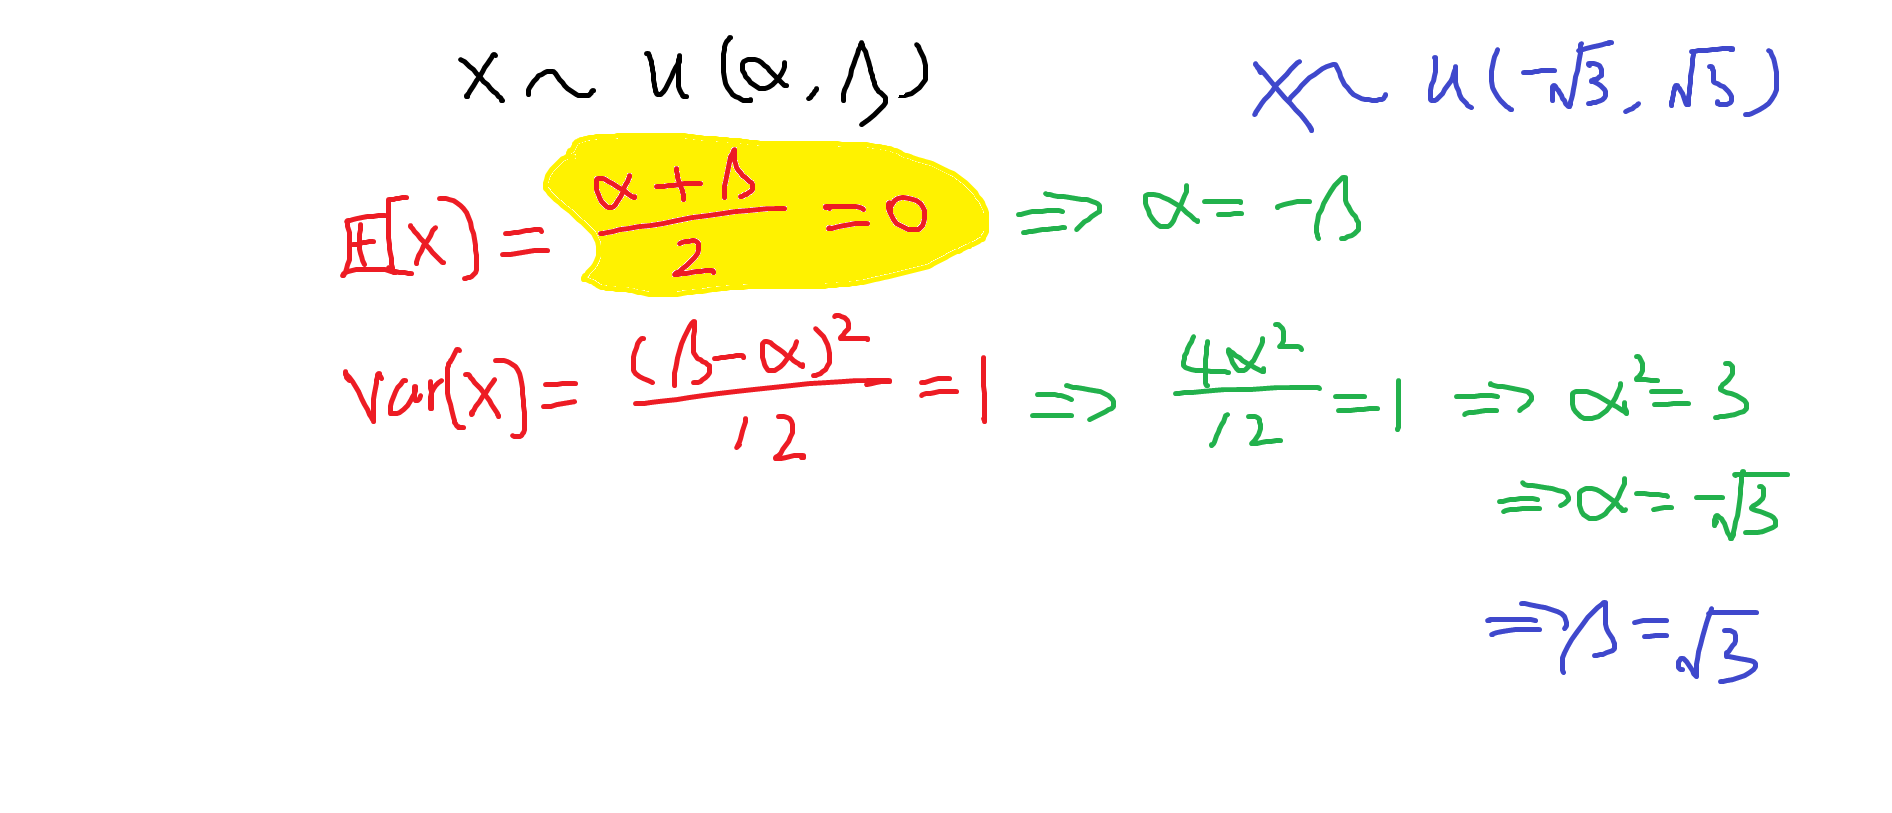 X ~ U(α, β)
X ~ U(-√3, √3)
E[X] = (α+β)/2 = 0 ⇒ α = -β
Var(X) = (β-α)²/12 = 1 ⇒ 4α²/12 = 1 ⇒ α² = 3
⇒ α = -√3
⇒ β = √3